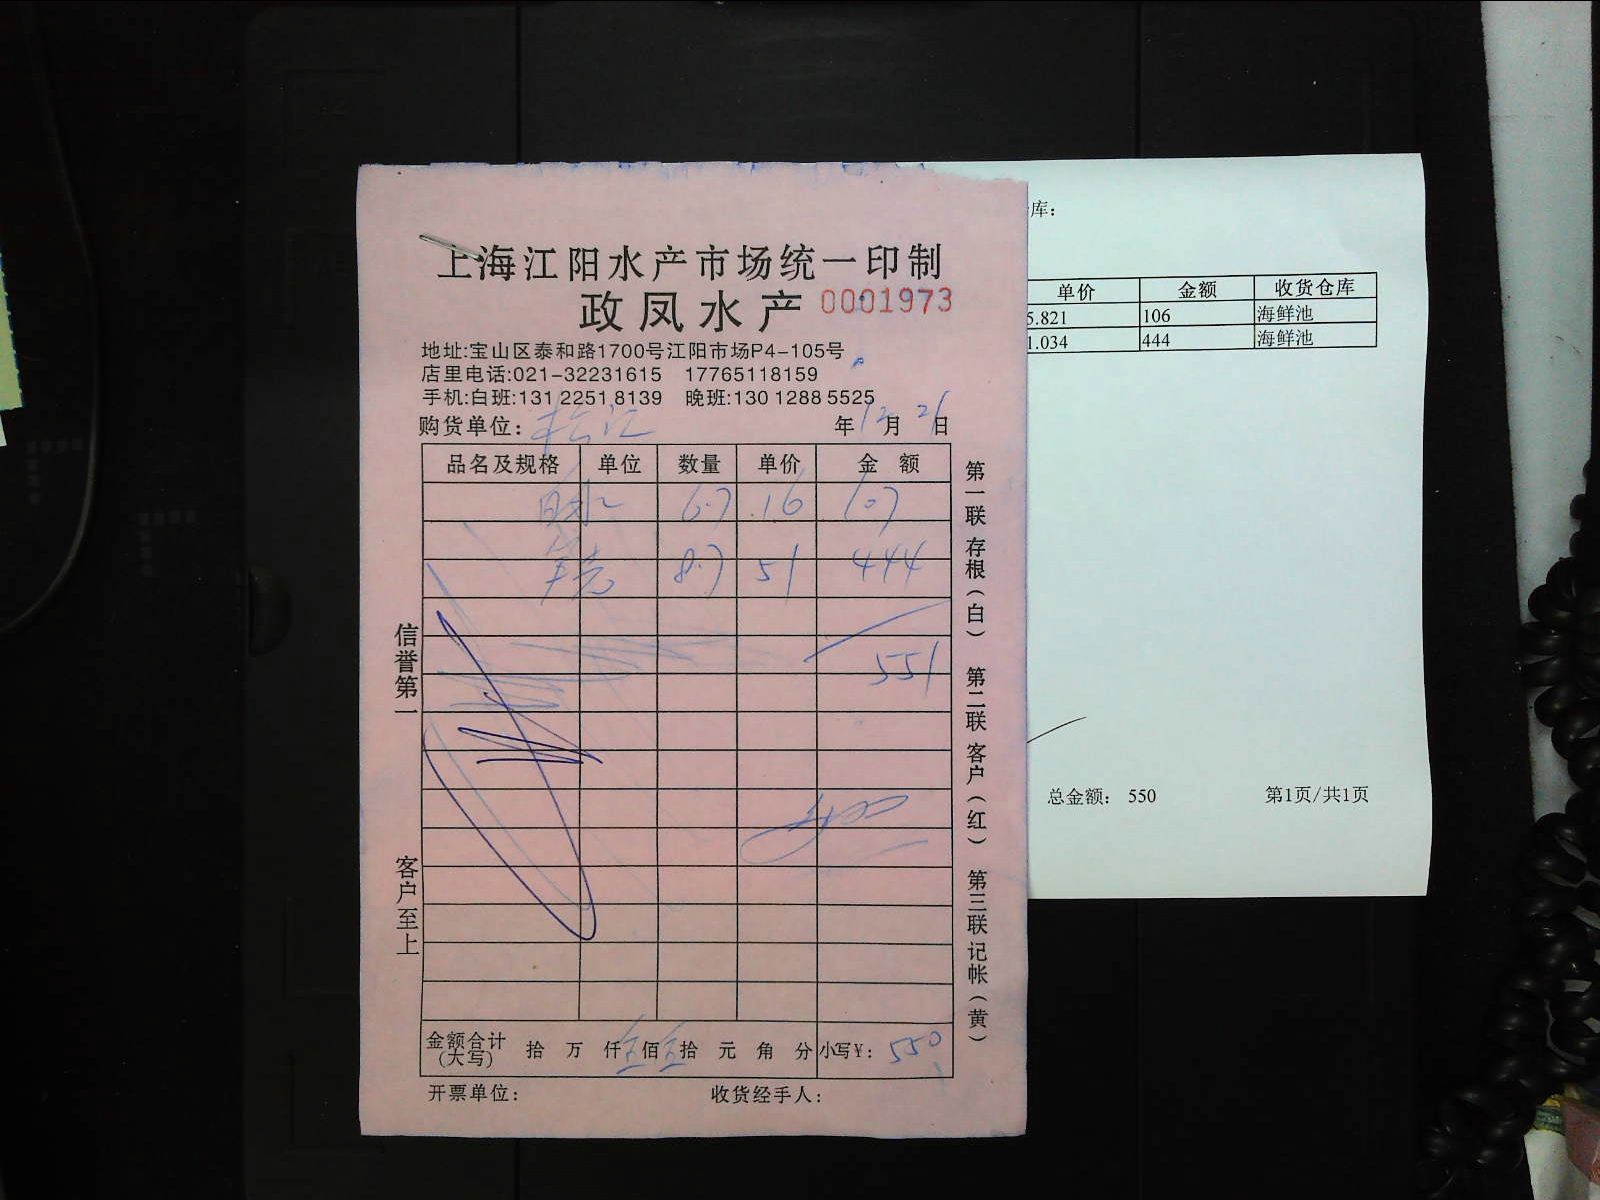 上海江阳水产市场统一印制
政凤水产 0001973
地址:宝山区泰和路1700号江阳市场P4-105号
店里电话:021-32231615 17765118159
手机:白班:131 2251 8139 晚班:130 1288 5525
购货单位: 松江 年12月21日
品名及规格 单位 数量 单价 金额
6.7 16 107
8.7 51 444
551
金额合计(大写) 拾 万 仟 伍佰 伍拾 元 角 分 小写¥: 550
开票单位: 收货经手人:
信誉第一
客户至上
第一联存根(白) 第二联客户(红) 第三联记帐(黄)
库:
单价 金额 收货仓库
5.821 106 海鲜池
1.034 444 海鲜池
总金额: 550 第1页/共1页